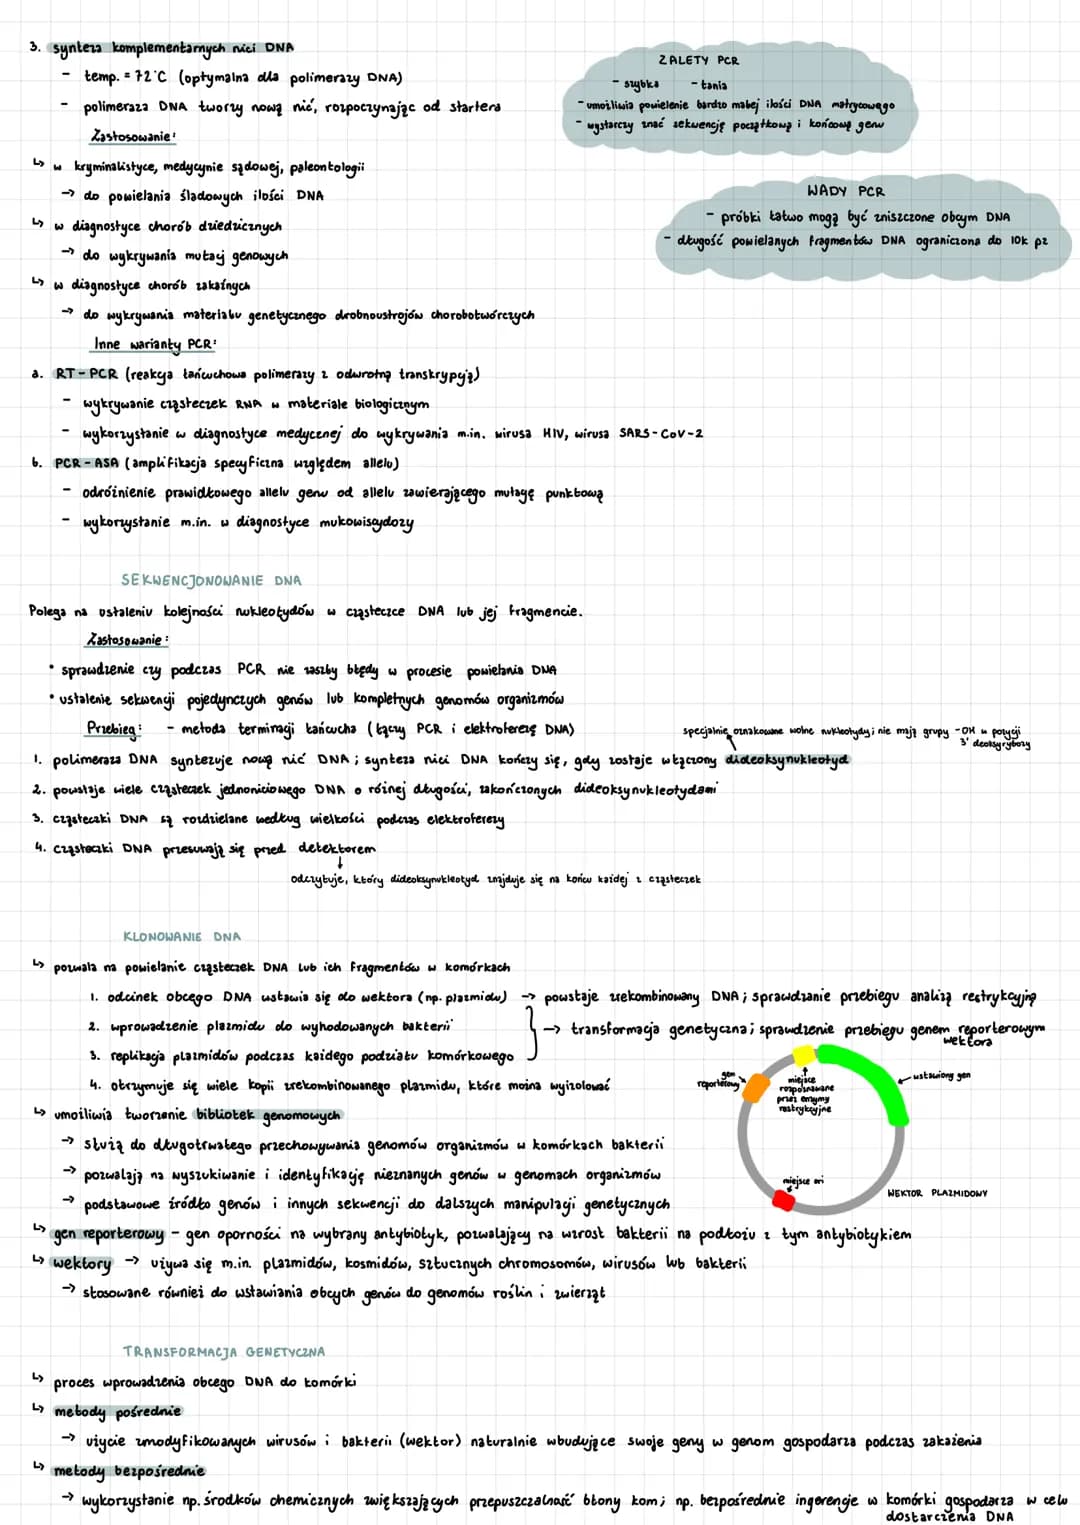 3. synteza komplementarnych nici DNA
- temp. = 72°C (optymalna dla polimerazy DNA)
- polimeraza DNA tworzy nową nić, rozpoczynając od startera
Zastosowanie:
↳ w kryminalistyce, medycynie sądowej, paleontologii
→ do powielania śladowych ilości DNA
↳ w diagnostyce chorób dziedzicznych
→ do wykrywania mutacj genowych
↳ w diagnostyce chorób zakaźnych
→ do wykrywania materiału genetycznego drobnoustrojów chorobotwórczych
ZALETY PCR
- szybka - tania
- umożliwia powielenie bardzo małej ilości DNA matrycowego
- wystarczy znać sekwencję początkową i końcową genu
WADY PCR
- próbki łatwo mogą być zniszczone obcym DNA
- długość powielanych fragmentów DNA ograniczona do 10k pz
Inne warianty PCR:
a. RT-PCR (reakcja łańcuchowa polimerazy z odwrotną transkrypcją)
- wykrywanie cząsteczek RNA w materiale biologicznym
- wykorzystanie w diagnostyce medycznej do wykrywania m.in. wirusa HIV, wirusa SARS-CoV-2
b. PCR-ASA (amplifikacja specyficzna względem allelu)
- odróżnienie prawidłowego allelu genu od allelu zawierającego mutację punktową
- wykorzystanie m.in. w diagnostyce mukowiscydozy
SEKWENCJONOWANIE DNA
Polega na ustaleniu kolejności nukleotydów w cząsteczce DNA lub jej fragmencie.
Zastosowanie:
• sprawdzenie czy podczas PCR nie zaszły błędy w procesie powielania DNA
• ustalenie sekwencji pojedynczych genów lub kompletnych genomów organizmów
Przebieg: - metoda terminacji łańcucha (łączy PCR i elektroforezę DNA)
specjalnie oznakowane wolne nukleotydy; nie mają grupy -OH w pozycji
3' deoksyrybozy
1. polimeraza DNA syntezuje nową nić DNA; synteza nici DNA kończy się, gdy zostaje włączony dideoksynukleotyd
2. powstaje wiele cząsteczek jednoniciowego DNA o różnej długości, zakończonych dideoksynukleotydami
3. cząsteczki DNA są rozdzielane według wielkości podczas elektroforezy
4. cząsteczki DNA przesuwają się przed detektorem
↓
odczytuje, który dideoksynukleotyd znajduje się na końcu każdej z cząsteczek
KLONOWANIE DNA
↳ pozwala na powielanie cząsteczek DNA lub ich fragmentów w komórkach
1. odcinek obcego DNA wstawia się do wektora (np. plazmidu) → powstaje zrekombinowany DNA; sprawdzanie przebiegu analizą restrykcyjną
2. wprowadzenie plazmidu do wyhodowanych bakterii
→ transformacja genetyczna; sprawdzenie przebiegu genem reporterowym
wektora
3. replikacja plazmidów podczas każdego podziału komórkowego
4. otrzymuje się wiele kopii zrekombinowanego plazmidu, które można wyizolować
gen
reporterowy
miejsce
rozpoznawane
przez enzymy
restrykcyjne
wstawiony gen
miejsce ori
WEKTOR PLAZMIDOWY
↳ umożliwia tworzenie bibliotek genomowych
→ służą do długotrwałego przechowywania genomów organizmów w komórkach bakterii
→ pozwalają na wyszukiwanie i identyfikację nieznanych genów w genomach organizmów
→ podstawowe źródło genów i innych sekwencji do dalszych manipulacji genetycznych
↳ gen reporterowy - gen oporności na wybrany antybiotyk, pozwalający na wzrost bakterii na podłożu z tym antybiotykiem
↳ wektory → używa się m.in. plazmidów, kosmidów, sztucznych chromosomów, wirusów lub bakterii
→ stosowane również do wstawiania obcych genów do genomów roślin i zwierząt
TRANSFORMACJA GENETYCZNA
↳ proces wprowadzenia obcego DNA do komórki
↳ metody pośrednie
→ użycie zmodyfikowanych wirusów i bakterii (wektor) naturalnie wbudujące swoje geny w genom gospodarza podczas zakażenia
↳ metody bezpośrednie
→ wykorzystanie np. środków chemicznych zwiększających przepuszczalność błony kom; np. bezpośrednie ingerencje w komórki gospodarza w celu
dostarczenia DNA